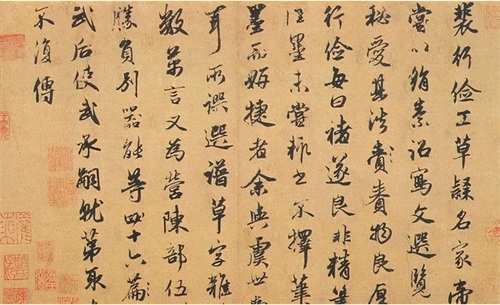 裴行儉工草隸名家帝
嘗以絹素詔寫文選覽
秘愛其法賚物良厚
行儉每曰褚遂良非精
佳墨未嘗輒書不擇筆
墨而妍捷者余與虞世
耳所譔選譜草字雜
數萬言又為營陳部伍
勝負別器能等四十六篇
武后使武承嗣就第取
不復傳